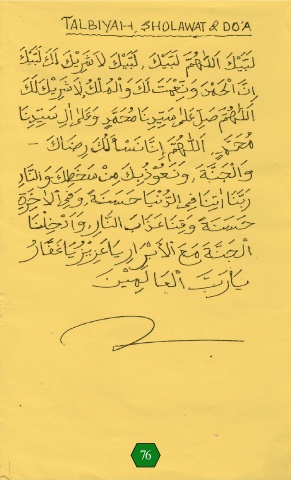 TALBIYAH, SHOLAWAT & DO'A
لَبَّيْكَ اللّٰهُمَّ لَبَّيْكَ، لَبَّيْكَ لَا شَرِيْكَ لَكَ لَبَّيْكَ
اِنَّ الْحَمْدَ وَنِعْمَتَ لَكَ وَالْمُلْكُ لَا شَرِيْكَ لَكَ
اَللّٰهُمَّ صَلِّ عَلٰى سَيِّدِنَا مُحَمَّدٍ وَعَلٰى اٰلِ سَيِّدِنَا
مُحَمَّدٍ، اَللّٰهُمَّ اِنَّا نَسْأَلُكَ رِضَاكَ -
وَالْجَنَّةَ، وَنَعُوْذُ بِكَ مِنْ سَخَطِكَ وَالنَّارِ
رَبَّنَا اٰتِنَا فِى الدُّنْيَا حَسَنَةً، وَفِى الْاٰخِرَةِ
حَسَنَةً وَقِنَا عَذَابَ النَّارِ، وَاَدْخِلْنَا
الْجَنَّةَ مَعَ الْأَبْرَارِ يَا عَزِيْزُ يَا غَفَّارُ
يَا رَبَّ الْعَالَمِيْنَ
76